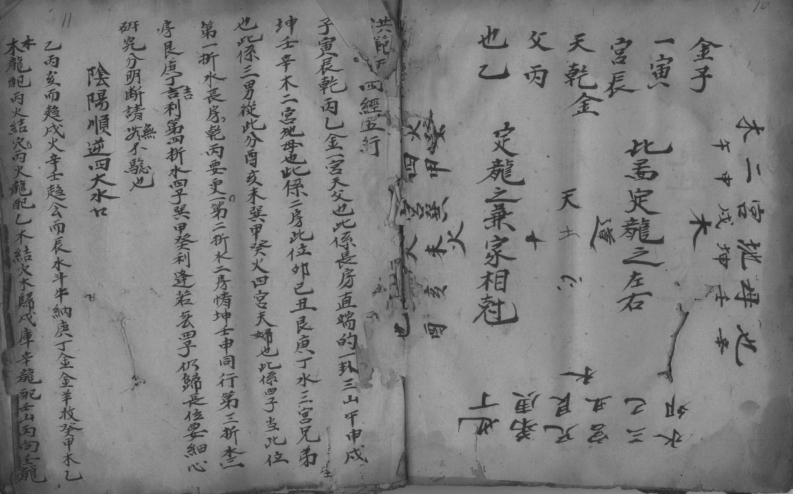 金子
一寅
宮辰
天乾金
父丙
也乙
木二宮地母也
午申戌坤壬辛
木
此盂定龍之左右
天
定龍之兼家相尅
火癸
四甲
宮巽
火未
亥
酉
也
水卯
三巳
宮丑
兄艮
弟庚
也丁
洪範 四經五行
子寅辰乾丙乙金一宮天父也此係長房直端的一卦三山午申戌
坤壬辛木二宮地母也此係二房此位卯巳丑艮庚丁水三宮兄弟
也此係三男從此分酉亥未巽甲癸火四宮夫婦也此係四子当此位
第一折水長房乾丙要更第二折水二房情坤壬申同行第三折本三
房艮庚丁吉利第四折水四子巽甲癸利逢若無四子仍歸長位要細心
研究分明断諸 無不驗也
陰陽順逆四大水口
乙丙亥而趨戌火辛壬趨会而辰水斗牛納庚丁金金羊收癸甲木乙
木龍配丙火結穴丙火龍配乙木結火木歸戌庫辛龍配壬